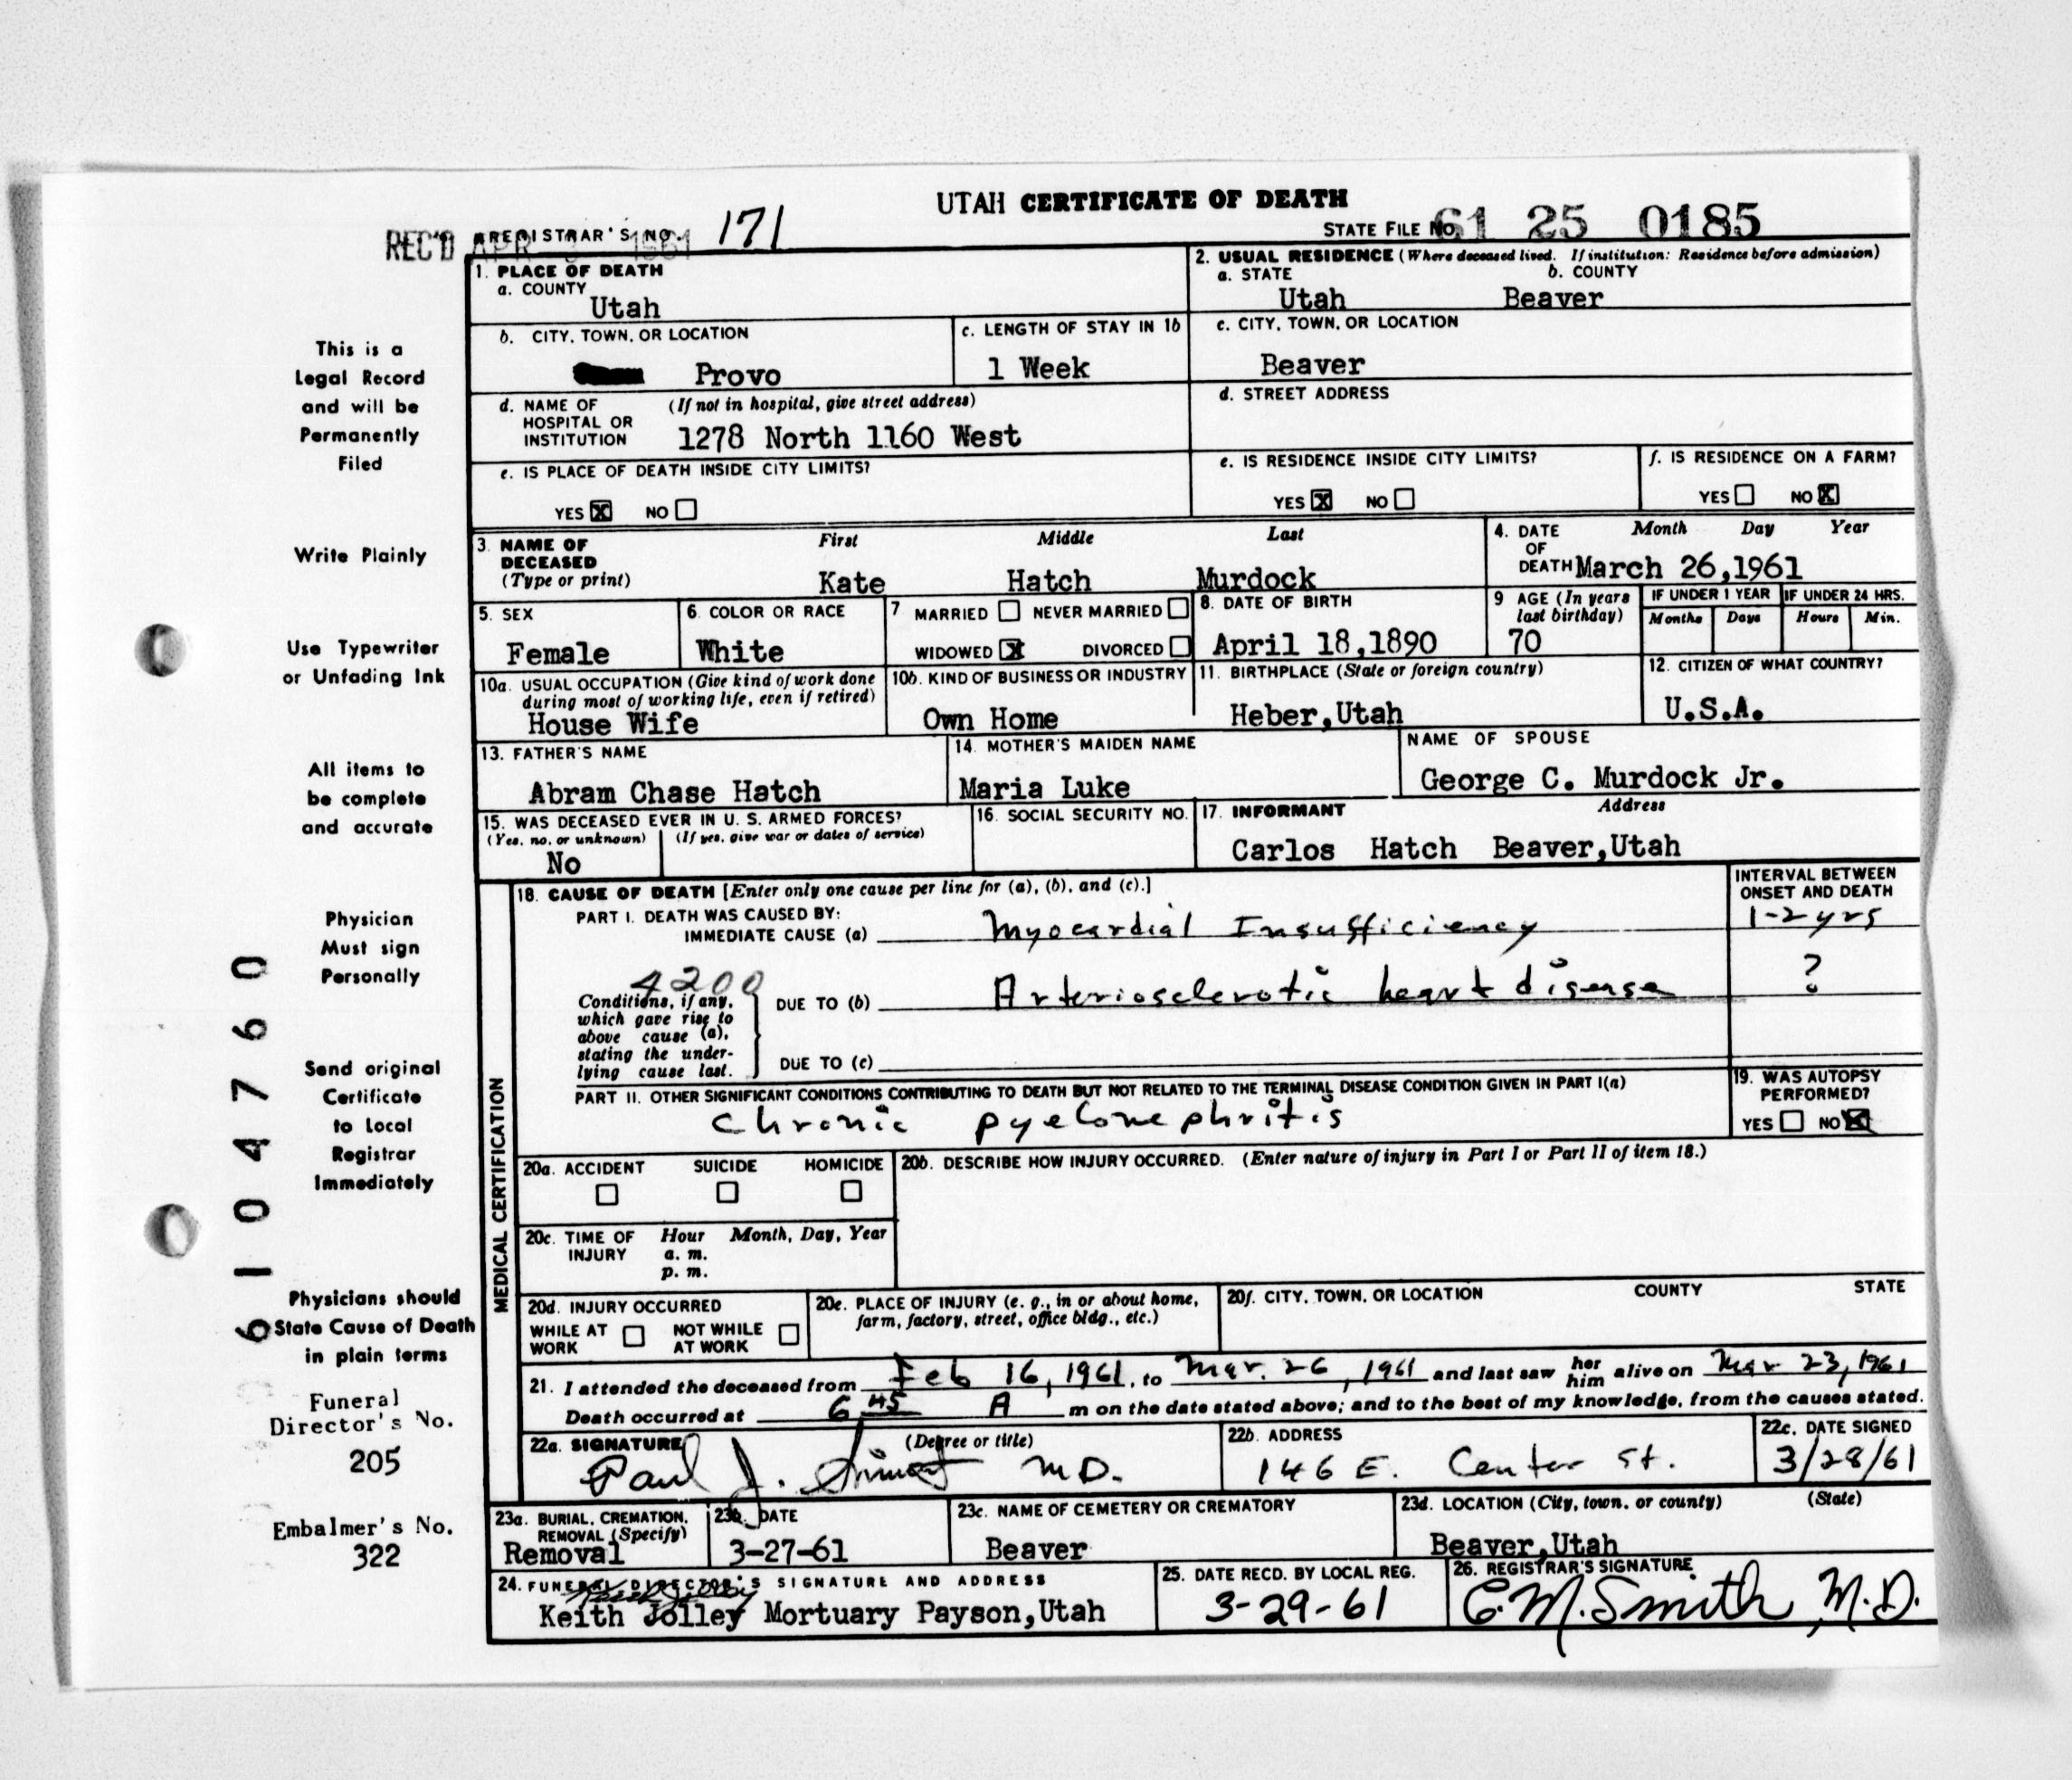 UTAH CERTIFICATE OF DEATH
REC'D APR 1961 REGISTRAR'S NO. 171
STATE FILE NO. 61 25 0185
1. PLACE OF DEATH
a. COUNTY
Utah
2. USUAL RESIDENCE (Where deceased lived. If institution: Residence before admission)
a. STATE b. COUNTY
Utah Beaver
b. CITY, TOWN, OR LOCATION
Provo
c. LENGTH OF STAY IN 1b
1 Week
c. CITY, TOWN, OR LOCATION
Beaver
d. NAME OF HOSPITAL OR INSTITUTION (If not in hospital, give street address)
1278 North 1160 West
d. STREET ADDRESS
e. IS PLACE OF DEATH INSIDE CITY LIMITS?
YES X NO
e. IS RESIDENCE INSIDE CITY LIMITS?
YES X NO
f. IS RESIDENCE ON A FARM?
YES NO X
3. NAME OF DECEASED (Type or print)
First Middle Last
Kate Hatch Murdock
4. DATE OF DEATH Month Day Year
March 26,1961
5. SEX
Female
6. COLOR OR RACE
White
7 MARRIED NEVER MARRIED
WIDOWED X DIVORCED
8. DATE OF BIRTH
April 18,1890
9 AGE (In years last birthday)
70
IF UNDER 1 YEAR
Months Days
IF UNDER 24 HRS.
Hours Min.
10a. USUAL OCCUPATION (Give kind of work done during most of working life, even if retired)
House Wife
10b. KIND OF BUSINESS OR INDUSTRY
Own Home
11. BIRTHPLACE (State or foreign country)
Heber,Utah
12. CITIZEN OF WHAT COUNTRY?
U.S.A.
13. FATHER'S NAME
Abram Chase Hatch
14. MOTHER'S MAIDEN NAME
Maria Luke
NAME OF SPOUSE
George C. Murdock Jr.
15. WAS DECEASED EVER IN U. S. ARMED FORCES?
(Yes, no, or unknown) (If yes, give war or dates of service)
No
16. SOCIAL SECURITY NO.
17. INFORMANT Address
Carlos Hatch Beaver,Utah
18. CAUSE OF DEATH [Enter only one cause per line for (a), (b), and (c).]
INTERVAL BETWEEN ONSET AND DEATH
PART I. DEATH WAS CAUSED BY:
IMMEDIATE CAUSE (a) Myocardial Insufficiency 1-2 yrs
4200
Conditions, if any, which gave rise to above cause (a), stating the underlying cause last.
DUE TO (b) Arteriosclerotic heart disease ?
DUE TO (c)
PART II. OTHER SIGNIFICANT CONDITIONS CONTRIBUTING TO DEATH BUT NOT RELATED TO THE TERMINAL DISEASE CONDITION GIVEN IN PART I(a)
Chronic pyelonephritis
19. WAS AUTOPSY PERFORMED?
YES NO X
MEDICAL CERTIFICATION
20a. ACCIDENT SUICIDE HOMICIDE
20b. DESCRIBE HOW INJURY OCCURRED. (Enter nature of injury in Part I or Part II of item 18.)
20c. TIME OF INJURY Hour Month, Day, Year
a. m.
p. m.
20d. INJURY OCCURRED
WHILE AT WORK NOT WHILE AT WORK
20e. PLACE OF INJURY (e. g., in or about home, farm, factory, street, office bldg., etc.)
20f. CITY, TOWN, OR LOCATION COUNTY STATE
21. I attended the deceased from Feb 16, 1961, to Mar. 26, 1961 and last saw her him alive on Mar 23, 1961
Death occurred at 6 45 A m on the date stated above; and to the best of my knowledge, from the causes stated.
22a. SIGNATURE (Degree or title)
Paul J. M.D.
22b. ADDRESS
146 E. Center St.
22c. DATE SIGNED
3/28/61
23a. BURIAL, CREMATION, REMOVAL (Specify)
Removal
23b. DATE
3-27-61
23c. NAME OF CEMETERY OR CREMATORY
Beaver
23d. LOCATION (City, town, or county) (State)
Beaver,Utah
24. FUNERAL DIRECTOR'S SIGNATURE AND ADDRESS
Keith Jolley
Keith Jolley Mortuary Payson,Utah
25. DATE RECD. BY LOCAL REG.
3-29-61
26. REGISTRAR'S SIGNATURE
E.M. Smith, M.D.
This is a
Legal Record
and will be
Permanently
Filed
Write Plainly
Use Typewriter
or Unfading Ink
All items to
be complete
and accurate
Physician
Must sign
Personally
Send original
Certificate
to Local
Registrar
Immediately
Physicians should
State Cause of Death
in plain terms
Funeral
Director's No.
205
Embalmer's No.
322
6104760